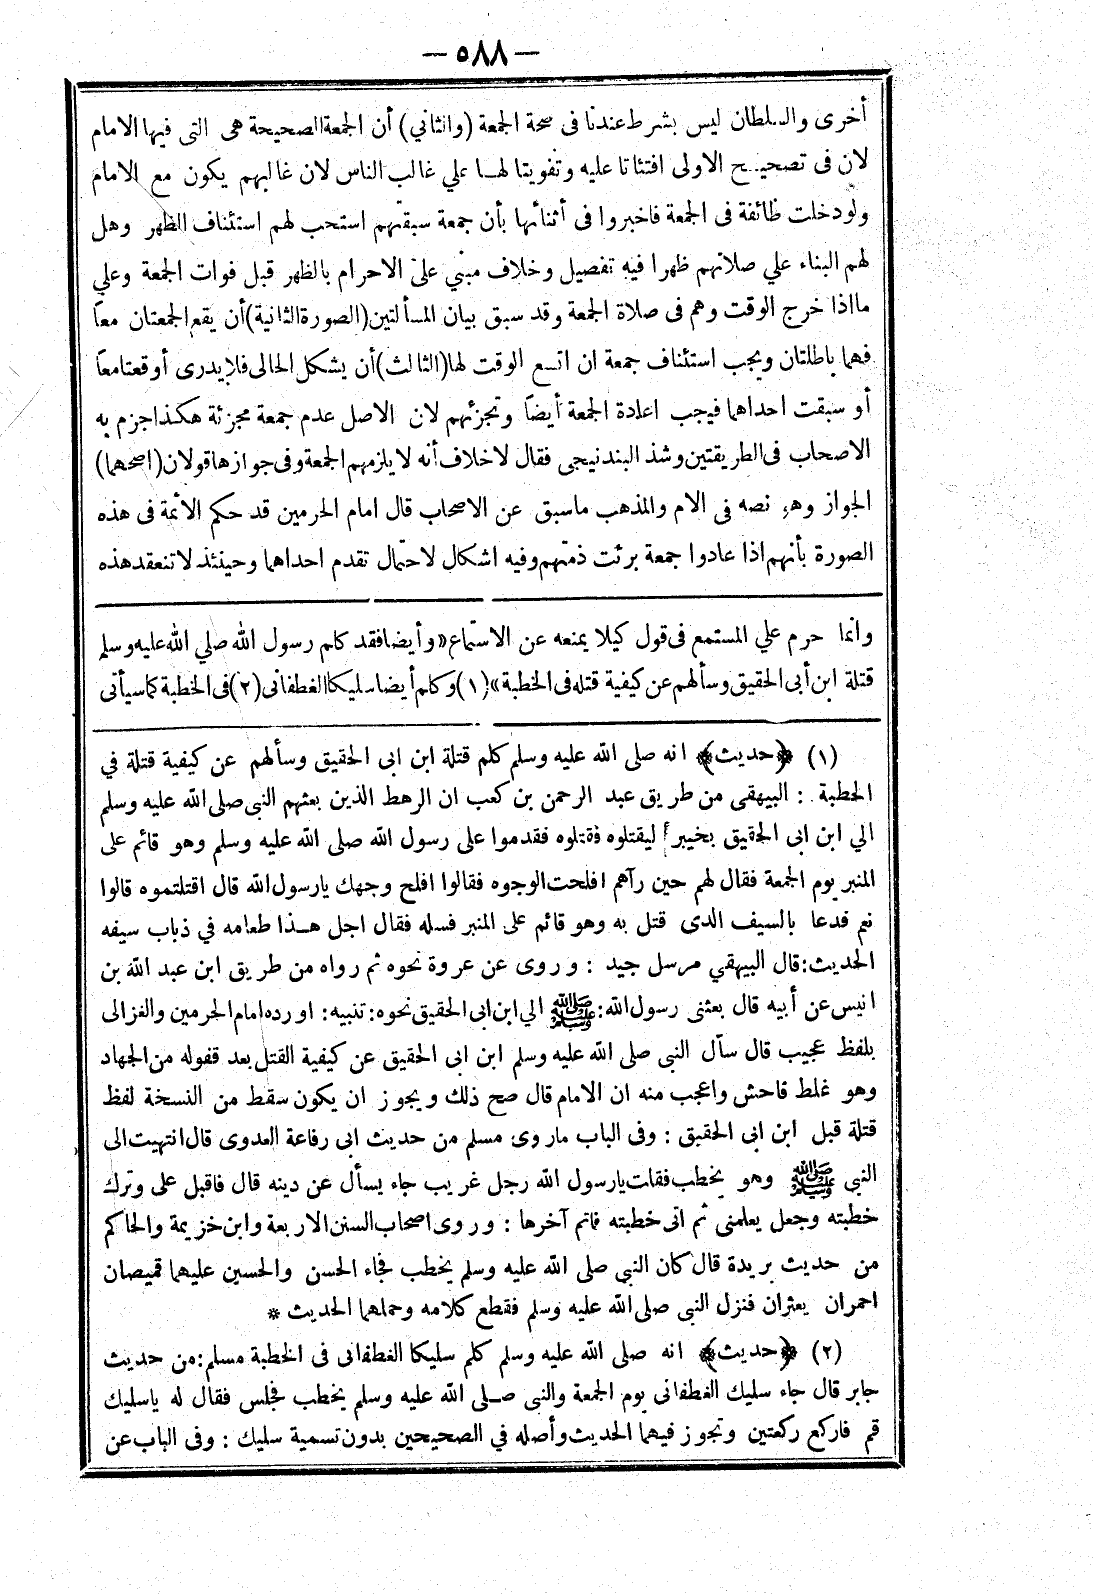 — ٥٨٨ —
أخرى والسلطان ليس بشرط عندنا فى صحة الجمعة (والثاني) أن الجمعة الصحيحة هى التى فيها الامام
لان فى تصحيح الاولى افتئاتا عليه وتفويتا لها علي غالب الناس لان غالبهم يكون مع الامام
ولو دخلت طائفة فى الجمعة فاخبروا فى أثنائها بأن جمعة سبقتهم استحب لهم استئناف الظهر وهل
لهم البناء علي صلاتهم ظهرا فيه تفصيل وخلاف مبني علي الاحرام بالظهر قبل فوات الجمعة وعلي
مااذا خرج الوقت وهم فى صلاة الجمعة وقد سبق بيان المسألتين (الصورة الثانية) أن يقع الجمعتان معاً
فهما باطلتان ويجب استئناف جمعة ان اتسع الوقت لها (الثالث) أن يشكل الحال فلا يدرى أوقعتا معاً
أو سبقت احداهما فيجب اعادة الجمعة أيضاً وتجزئهم لان الاصل عدم جمعة مجزئة هكذا جزم به
الاصحاب فى الطريقتين وشذ البندنيجى فقال لاخلاف أنه لا يلزمهم الجمعة وفى جوازها قولان (اصحهما)
الجواز وهو نصه فى الام والمذهب ماسبق عن الاصحاب قال امام الحرمين قد حكم الأئمة فى هذه
الصورة بأنهم اذا عادوا جمعة برئت ذمتهم وفيه اشكال لاحتمال تقدم احداهما وحينئذ لا تنعقد هذه
وانما حرم علي المستمع فى قول كيلا يمنعه عن الاستماع «وأيضا فقد كلم رسول الله صلي الله عليه وسلم
قتلة ابن أبي الحقيق وسألهم عن كيفية قتله فى الخطبة» (١) وكلم أيضا سليكا الغطفانى (٢) فى الخطبة كما سيأتى
(١) ﴿حديث﴾ انه صلى الله عليه وسلم كلم قتلة ابن ابى الحقيق وسألهم عن كيفية قتلة في
الخطبة : البيهقى من طريق عبد الرحمن بن كعب ان الرهط الذين بعثهم النبى صلى الله عليه وسلم
الي ابن ابى الحقيق بخيبر ليقتلوه فقتلوه فقدموا على رسول الله صلى الله عليه وسلم وهو قائم على
المنبر يوم الجمعة فقال لهم حين رآهم افلحت الوجوه فقالوا افلح وجهك يارسول الله قال اقتلتموه قالوا
نعم فدعا بالسيف الذى قتل به وهو قائم على المنبر فسله فقال اجل هذا طعامه في ذباب سيفه
الحديث: قال البيهقي مرسل جيد : وروى عن عروة نحوه ثم رواه من طريق ابن عبد الله بن
انيس عن أبيه قال بعثنى رسول الله: ﷺ الي ابن ابى الحقيق نحوه: تنبيه: اورده امام الحرمين والغزالى
بلفظ عجيب قال سأل النبي صلى الله عليه وسلم ابن ابى الحقيق عن كيفية القتل بعد قفوله من الجهاد
وهو غلط فاحش واعجب منه ان الامام قال صح ذلك ويجوز ان يكون سقط من النسخة لفظ
قتلة قبل ابن ابى الحقيق : وفى الباب ماروى مسلم من حديث ابى رفاعة العدوى قال انتهيت الى
النبى ﷺ وهو يخطب فقلت يارسول الله رجل غريب جاء يسأل عن دينه قال فاقبل على وترك
خطبته وجعل يعلمنى ثم اتى خطبته فاتم آخرها : وروى اصحاب السنن الاربعة وابن خزيمة والحاكم
من حديث بريدة قال كان النبي صلى الله عليه وسلم يخطب فجاء الحسن والحسين عليهما قميصان
احمران يعثران فنزل النبى صلى الله عليه وسلم فقطع كلامه وحملهما الحديث *
(٢) ﴿حديث﴾ انه صلى الله عليه وسلم كلم سليكا الغطفانى فى الخطبة مسلم: من حديث
جابر قال جاء سليك الغطفانى يوم الجمعة والنبى صلى الله عليه وسلم يخطب فجلس فقال له ياسليك
قم فاركع ركعتين وتجوز فيهما الحديث وأصله في الصحيحين بدون تسمية سليك : وفى الباب عن